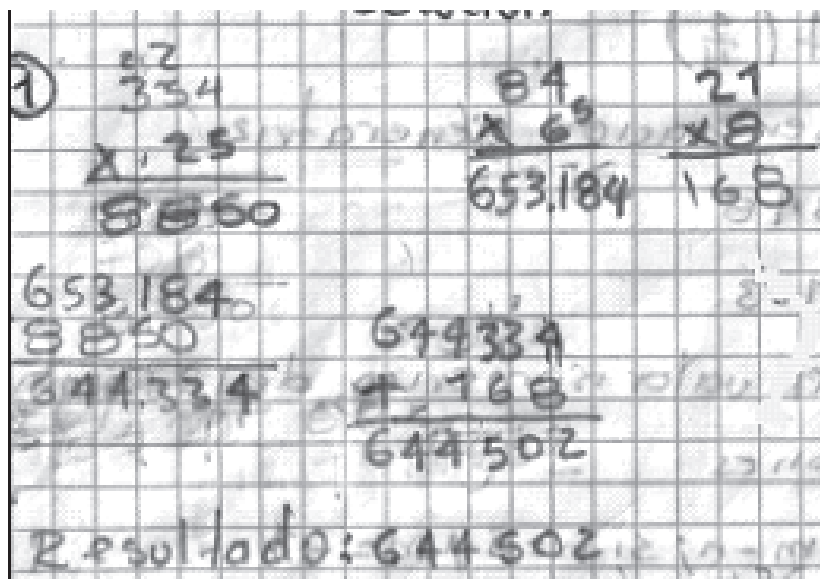 1
2 2
354
x 25
8850
84
x 6⁵
653.184
21
x 8
168
653.184
8850
644.334
644334
+ 168
644502
Resultado: 644502